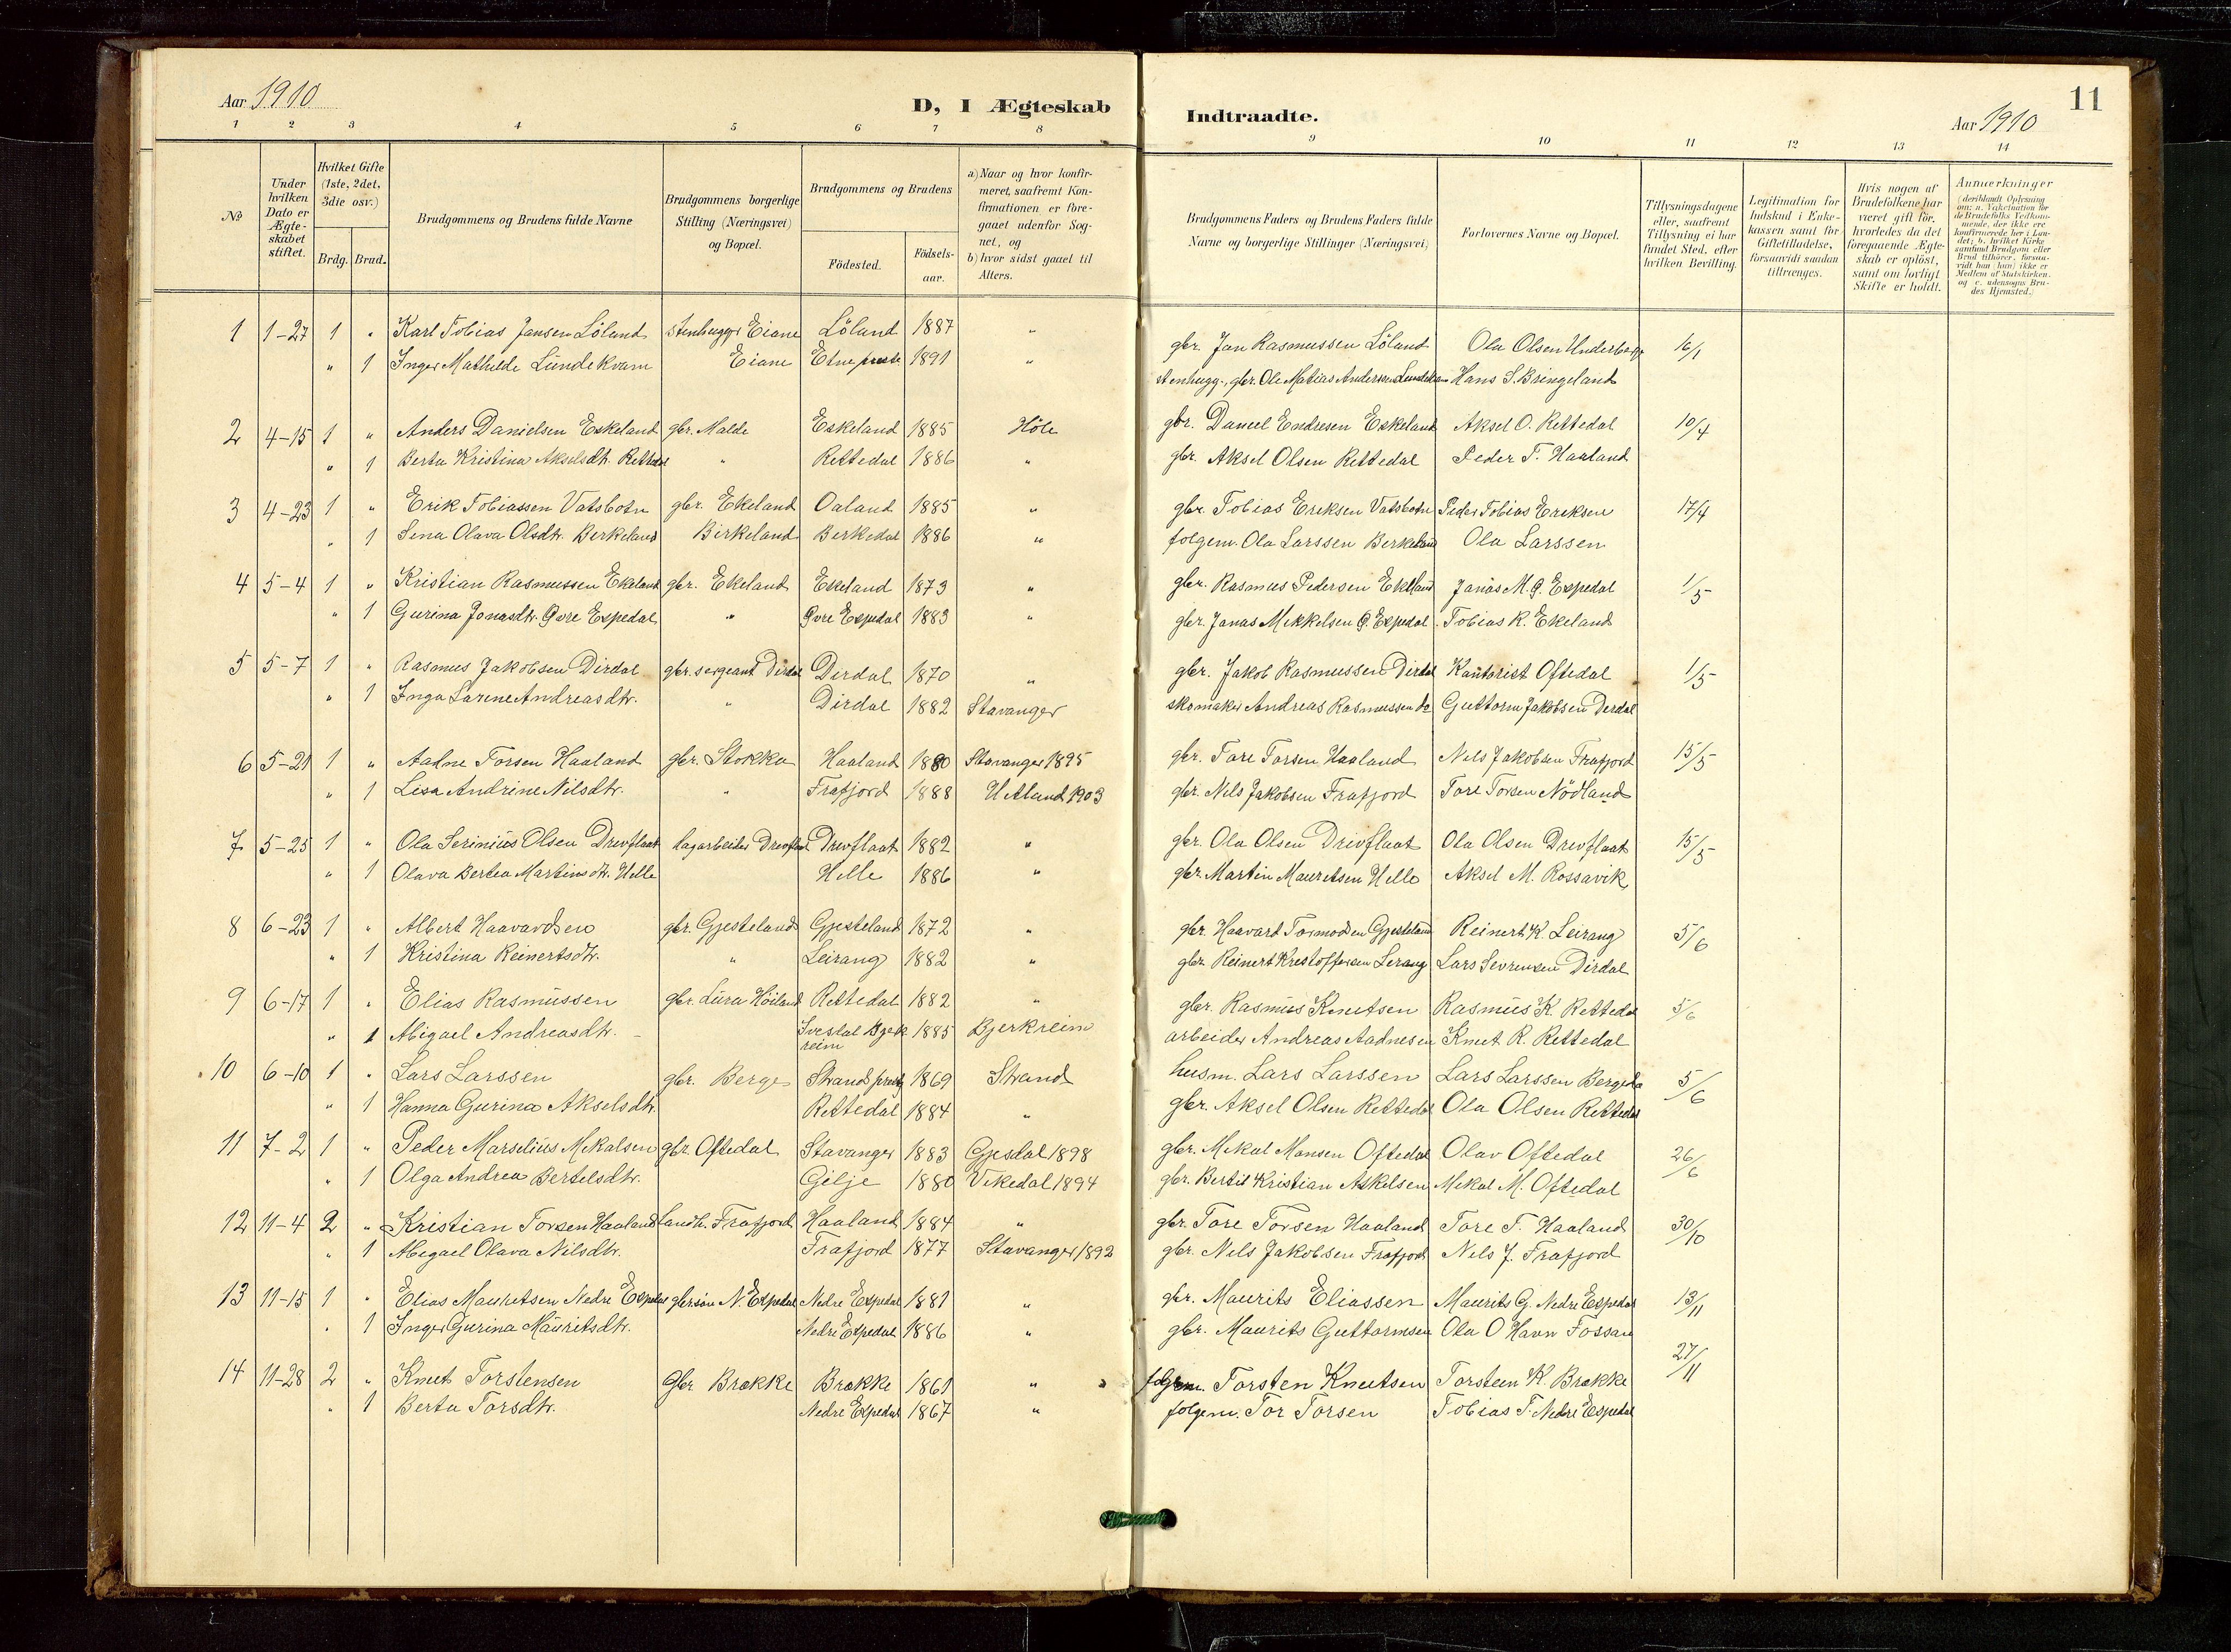 Aar 1910
D, I Ægteskab
Indtraadte.
Aar 1910
11
1 2 3 4 5 6 7 8 9 10 11 12 13 14
№
Under hvilken Dato er Ægteskabet stiftet.
Hvilket Gifte (1ste, 2det, 3die osv.)
Brdg. Brud.
Brudgommens og Brudens fulde Navne
Brudgommens borgerlige Stilling (Næringsvei) og Bopæl.
Brudgommens og Brudens
Födested.
Födsels-aar.
a) Naar og hvor konfirmeret, saafremt Konfirmationen er foregaaet udenfor Sognet, og
b) hvor sidst gaaet til Alters.
Brudgommens Faders og Brudens Faders fulde Navne og borgerlige Stillinger (Næringsvei)
Forlovernes Navne og Bopæl.
Tillysningsdagene eller, saafremt Tillysning ei har fundet Sted, efter hvilken Bevilling.
Legitimation for Indskud i Enkekassen samt for Giftetilladelse, forsaavidt saadan tiltrænges.
Hvis nogen af Brudefolkene har været gift för, hvorledes da det foregaaende Ægteskab er oplöst, samt om lovligt Skifte er holdt.
Anmærkninger (deriblandt Oplysning om: a. Vakcination for de Brudefolks Vedkommende, der ikke ere konfirmerede her i Landet; b. hvilket Kirkesamfund Brudgom eller Brud tilhörer, forsaavidt han (hun) ikke er Medlem af Statskirken, og c. udensogns Brudes Hjemsted.)
1 1-27 1 " Karl Tobias Jansen Löland stenhugger Eiane Löland 1887 " gbr. Jan Rasmussen Löland Ola Olsen Underberge 16/1
" 1 Inger Mathilde Lundekvam Eiane Etne prest. 1891 " stenhugg., gbr. Ole Matias Andersen Lundekvam Hans S. Bringeland
2 4-15 1 " Anders Danielsen Eskeland gbr. Malde Eskeland 1885 Höle gbr. Daniel Endresen Eskeland Aksel O. Rettedal 10/4
" 1 Berta Kristina Akselsdtr. Rettedal " Rettedal 1886 " gbr. Aksel Olsen Rettedal Peder T. Haaland
3 4-23 1 " Erik Tobiassen Vatsbotn gbr. Ekeland Oaland 1885 " gbr. Tobias Eriksen Vatsbotn Peder Tobias Eriksen 17/4
" 1 Sena Olava Olsdtr. Berkeland Birkeland Berkedal 1886 " folgem. Ola Larssen Berkeland Ola Larssen
4 5-4 1 " Kristian Rasmussen Ekeland gbr. Ekeland Ekeland 1873 " gbr. Rasmus Pedersen Ekeland Janas M. Ö. Espedal 1/5
" 1 Gurina Jonasdtr. Övre Espedal " Övre Espedal 1883 " gbr. Janas Mikkelsen Ö. Espedal Tobias R. Ekeland
5 5-7 1 " Rasmus Jakobsen Dirdal gbr. sergeant Dirdal Dirdal 1870 " gbr. Jakob Rasmussen Dirdal Kantorist Oftedal 1/5
" 1 Inga Larene Andreasdtr. " Dirdal 1882 Stavanger skomaker Andreas Rasmussen do Guttorm Jakobsen Dirdal
6 5-21 1 " Aadne Torsen Haaland gbr. Stokka Haaland 1880 Stavanger 1895 gbr. Tore Torsen Haaland Nils Jakobsen Frafjord 15/5
" 1 Lisa Andrine Nilsdtr. " Frafjord 1888 Hetland 1903 gbr. Nils Jakobsen Frafjord Tore Torsen Nödland
7 5-25 1 " Ola Serinius Olsen Drevflaat dagarbeider Drevflaat Drevflaat 1882 " gbr. Ola Olsen Drivflaat Ola Olsen Drevflaat 15/5
" 1 Olava Bertea Martinsdtr. Helle Helle 1886 " gbr. Martin Mauritsen Helle Aksel M. Rossavik
8 6-23 1 " Albert Haavardsen gbr. Gjesteland Gjesteland 1872 " gbr. Haavard Tormodsen Gjesteland Reinert K. Leirang 5/6
" 1 Kristina Reinertsdtr. " Leirang 1882 " gbr. Reinert Kristoffersen Lerang Lars Sevrensen Dirdal
9 6-17 1 " Elias Rasmussen gbr. Lura Höiland Rettedal 1882 " gbr. Rasmus Knutsen Rasmus K. Rettedal 5/6
" 1 Abigael Andreasdtr. Ivesdal Bjerkreim 1885 Bjerkreim arbeider Andreas Aadnesen Knut R. Rettedal
10 6-10 1 " Lars Larssen gbr. Berge Strand prest. 1869 Strand husm. Lars Larssen Lars Larssen Berge 5/6
" 1 Hanna Gurina Akselsdtr. Rettedal 1884 " gbr. Aksel Olsen Rettedal Ola Olsen Rettedal
11 7-2 1 " Peder Marselius Mikalsen gbr. Oftedal Stavanger 1883 Gjesdal 1898 gbr. Mikal Monsen Oftedal Olav Oftedal 26/6
" 1 Olga Andrea Bertelsdtr. Gilje 1880 Vikedal 1894 gbr. Bertil Kristian Askelsen Mikal M. Oftedal
12 11-4 2 " Kristian Torsen Haaland Landh. Frafjord Haaland 1884 " gbr. Tore Torsen Haaland Tore T. Haaland 30/10
" 1 Abegael Olava Nilsdtr. Frafjord 1877 Stavanger 1892 gbr. Nils Jakobsen Frafjord Nils J. Frafjord
13 11-15 1 " Elias Mauritsen Nedre Espedal gbrsön N. Espedal Nedre Espedal 1881 " gbr. Maurits Eliassen Maurits G. Nedre Espedal 13/11
" 1 Inger Gurina Mauritsdtr. Nedre Espedal 1886 " gbr. Maurits Guttormsen Ola O Havn Fossan
14 11-28 2 " Knut Torstensen Gbr Brække Brække 1861 " folgem. Torsten Knutsen Torsteen K. Brække 27/11
" 1 Berta Torsdtr. Nedre Espedal 1867 " folgem. Tor Torsen Tobias T. Nedre Espedal